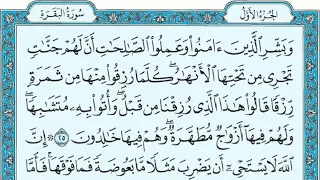 الجزء الأول
سورة البقرة
وَبَشِّرِ الَّذِينَ ءَامَنُوا وَعَمِلُوا الصَّالِحَاتِ أَنَّ لَهُمْ جَنَّاتٍ
تَجْرِي مِن تَحْتِهَا الْأَنْهَارُ كُلَّمَا رُزِقُوا مِنْهَا مِن ثَمَرَةٍ
رِّزْقًا قَالُوا هَذَا الَّذِي رُزِقْنَا مِن قَبْلُ وَأُتُوا بِهِ مُتَشَابِهًا
وَلَهُمْ فِيهَا أَزْوَاجٌ مُّطَهَّرَةٌ وَهُمْ فِيهَا خَالِدُونَ ٢٥ إِنَّ
اللَّهَ لَا يَسْتَحْيِي أَن يَضْرِبَ مَثَلًا مَّا بَعُوضَةً فَمَا فَوْقَهَا فَأَمَّا